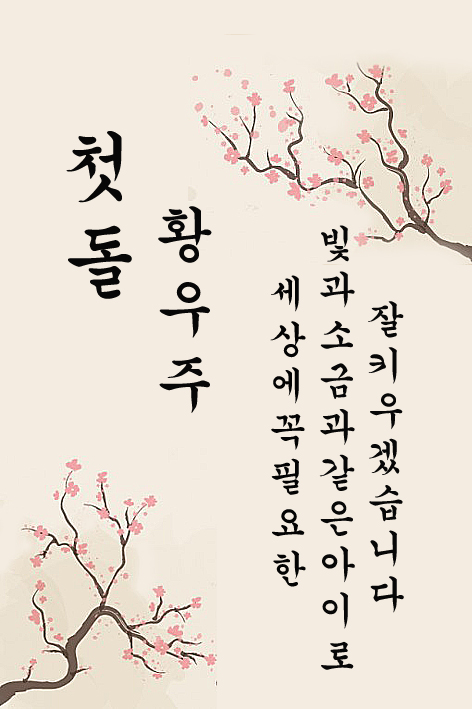 첫돌
황우주
세상에꼭필요한
빛과소금과같은아이로
잘키우겠습니다